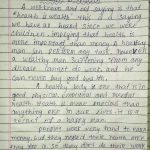 A wellknown and old saying is that
"health is wealth". This is a saying
we have all heard since we were
children, implying that health is
more important than money. A healthy
man can perform any task, however
a wealthy man suffering from any
disease cannot work and he
can never buy good health.
A healthy body is one that is in
good physical, emotional and mental
health. Health is more precious than
anything else in our lives. It is a
secret of a happy man.
people work very hard to earn
money, but they neglect their health once
they do so they don't do their work